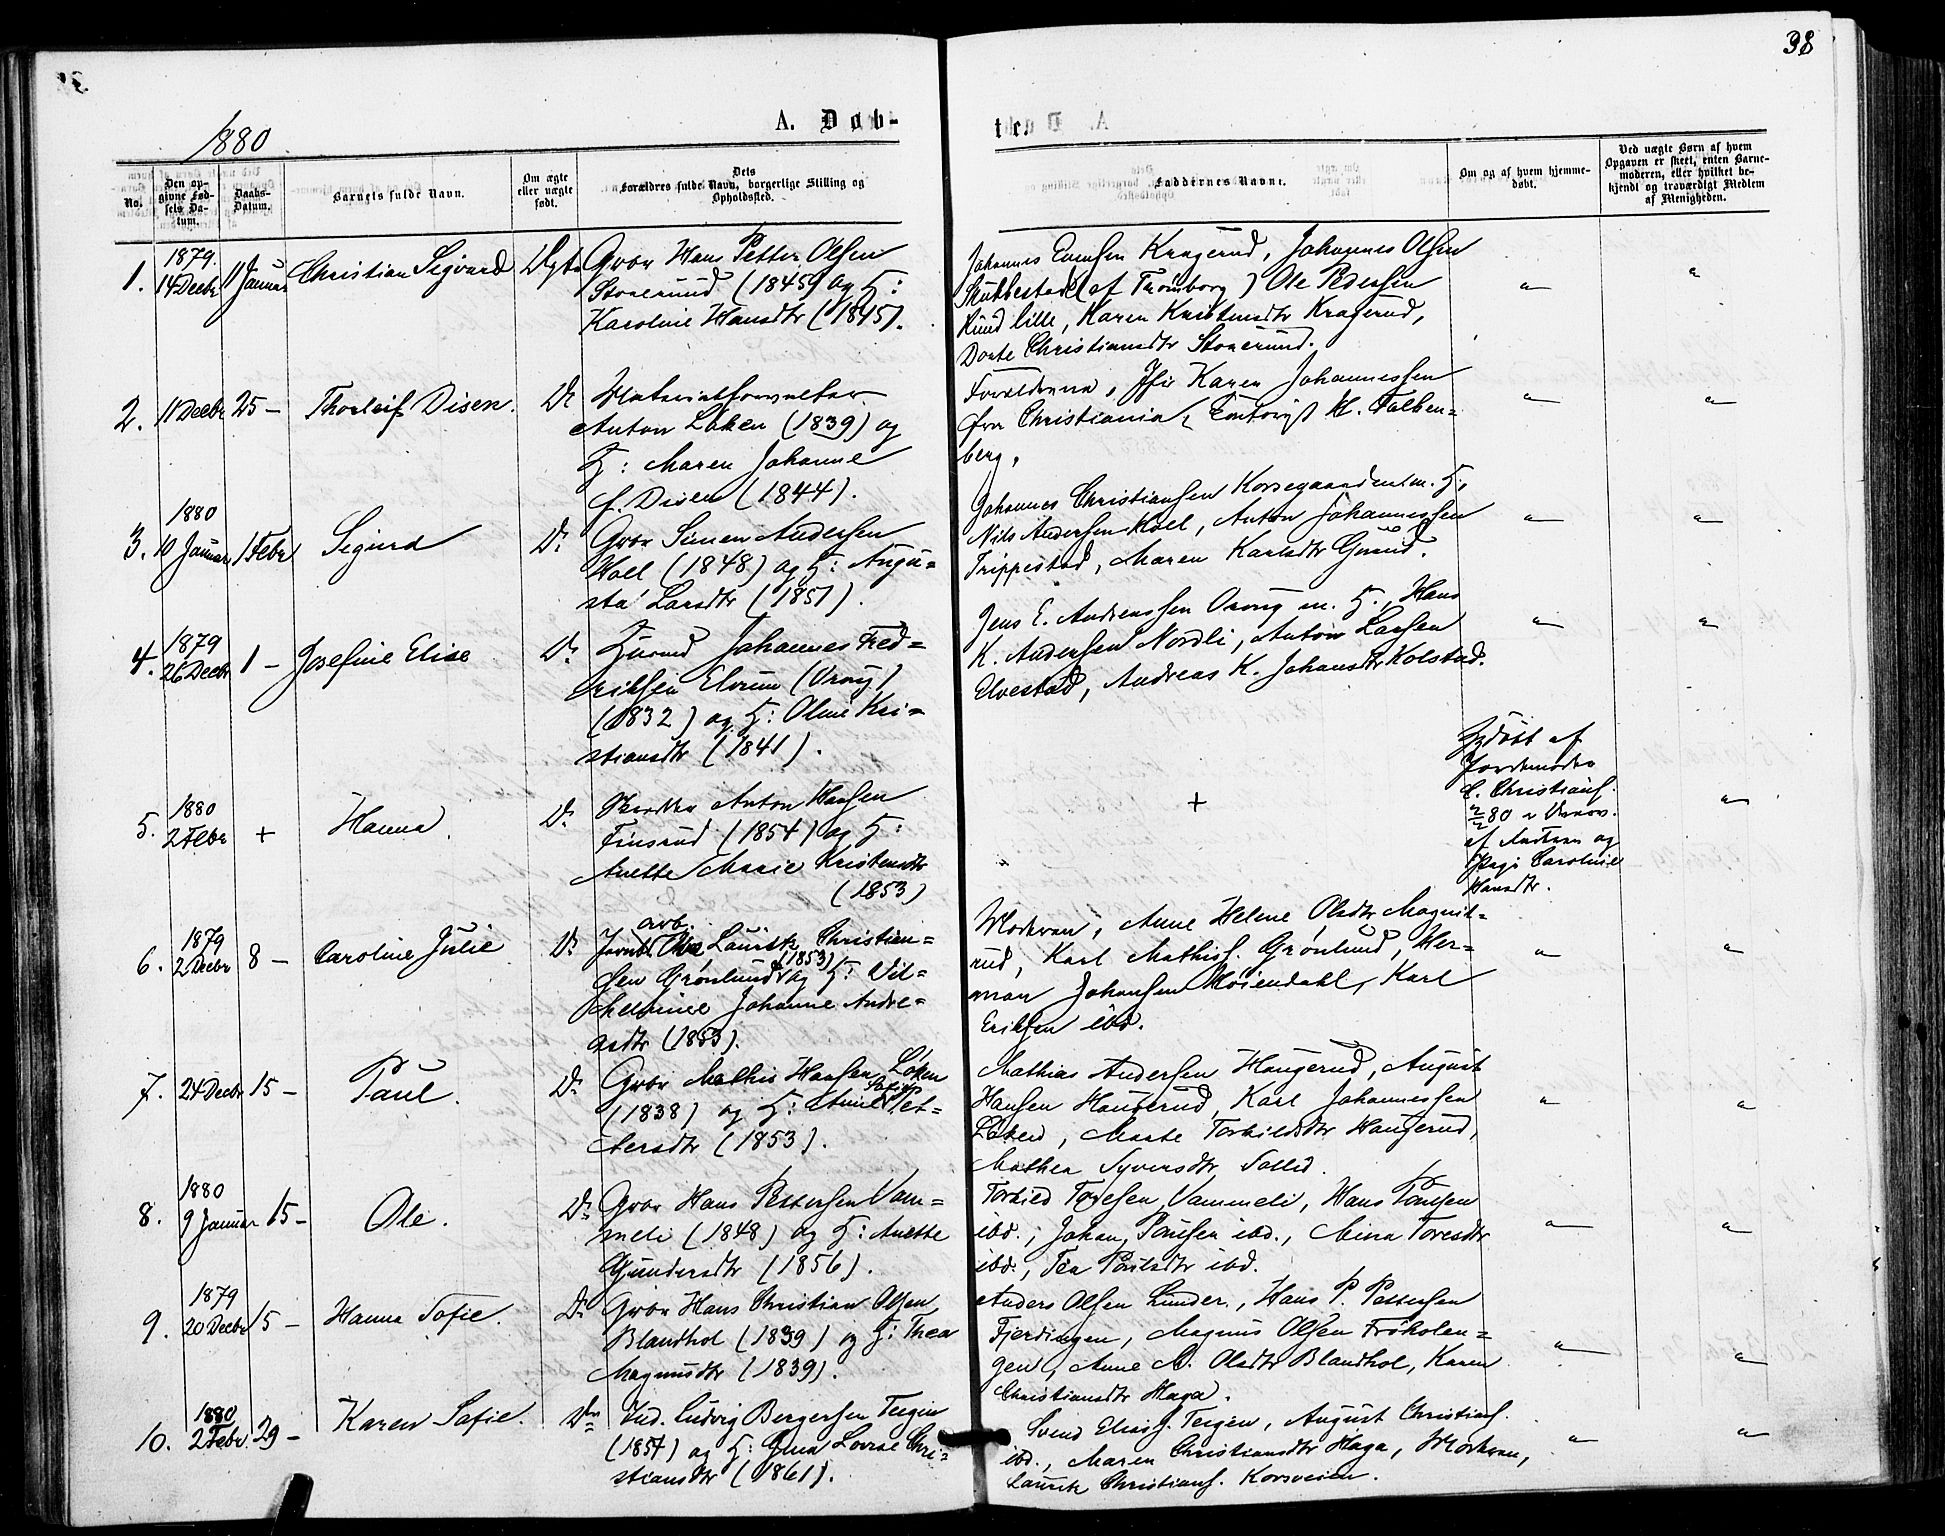 38
1880
A. Døb-
ten
No.
Den op-
givne Fød-
sels Da-
tum.
Daabs-
Datum.
Barnets fulde Navn.
Om ægte
eller uægte
født.
Dets
Forældres fulde Navn, borgerlige Stilling og
Opholdssted.
Faddernes Navne.
Om og af hvem hjemme-
døbt.
Ved uægte Børn af hvem
Opgaven er skeet, enten Barne-
moderen, eller hvilket be-
kjendt og troværdigt Medlem
af Menigheden.
1.
1879
14 Decbr
11 Januar
Christian Sigvard
Ægte
Gbr Hans Petter Olsen
(1845) og H:
Karoline Hansdtr (1845).
Johannes Evensen Kragerud, Johannes Olsen
Skubbestad (af Trømborg) Ole Pedersen
Rud lille, Karen Kristensdtr Kragerud,
Dorte Christiansdtr
2.
11 Decbr
25 -
Thorleif Disen.
Do
Materialforvalter
Anton Løken (1839) og
H: Maren Johanne
f. Disen (1844).
Forældrene, Jfr Karen Johannessen
fra Christiania, Contorist H. Falken-
berg.
3.
1880
10 Januar
1 Febr
Sigurd
Do
Gbr Simen Andersen
Hoel (1848) og H: Augu-
sta Larsdtr (1851).
Johannes Christiansen Korsegaarden m. H.,
Nils Andersen Hoel, Anton Johannessen
Trippestad, Maren Karlsdtr
4.
1879
26 Decbr
1 -
Josefine Elise
Do
Husmd Johannes Fred-
riksen Elvrum
(1832) og H: Oline Kri-
stiansdtr (1841).
Jens E. Andreassen m. H., Hans
K. Andersen Nordli, Anton Larsen
Elvestad, Andreas K. Johansdtr Kolstad.
5.
1880
2 Febr
+
Hanna.
Do
Anton Hansen
Finsrud (1854) og H:
Anette Marie Kristensdtr
(1853)
+
Hjdøbt af
Jordmoder
C. Christians.
2/2 80
af Faderen og
Pige Caroline
Hansdtr.
6.
1879
2 Decbr
8 -
Caroline Julie
Do
arb.
Jernb. Laurits Christian-
sen Grønlund (1853) og H: Vil-
helmine Johanne Andre-
asdtr (1853).
Modren, Anne Helene Olsdtr Magnil-
rud, Karl Mathiss. Grønlund, Her-
man Johansen Møiendahl, Karl
Eriksen ibd.
7.
24 Decbr
15 -
Paul.
Do
Gbr Mathis Hansen Løken
(1838) og H: Anne Sofie Pet-
tersdtr (1853).
Mathias Andersen Haugerud, August
Hansen Haugerud, Karl Johannessen
Løken, Marte Torkildsdtr Haugerud,
Mathea Syversdtr Sollid.
8.
1880
9 Januar
15 -
Ole.
Do
Gbr Hans Pettersen Vam-
meli (1848) og H: Anette
Gundersdtr (1856).
Torkild Toresen Vammeli, Hans Paulsen
ibd., Johan Paulsen ibd., Mina Toresdtr
ibd., Tea Paulsdtr ibd.
9.
1879
20 Decbr
15 -
Hanna Sofie.
Do
Gbr Hans Christian Olsen
Blandhol (1839) og H: Thea
Magnusdtr (1839).
Anders Olsen Lunder., Hans P. Pettersen
Fjerdingen, Magnus Olsen Frøholen-
gen, Anne M. Olsdtr Blandhol, Karen
Christiansdtr Haga.
10.
1880
2 Febr.
29 -
Karen Sofie.
Do
Ind. Ludvig Bergersen Teigen
(1857) og H: Gina Lovise Chri-
stiansdtr (1861).
Svend Eliass. Teigen, August Christians.
ibd., Maren Christiansdtr Haga, Modren,
Laurits Christians. Korsveien.